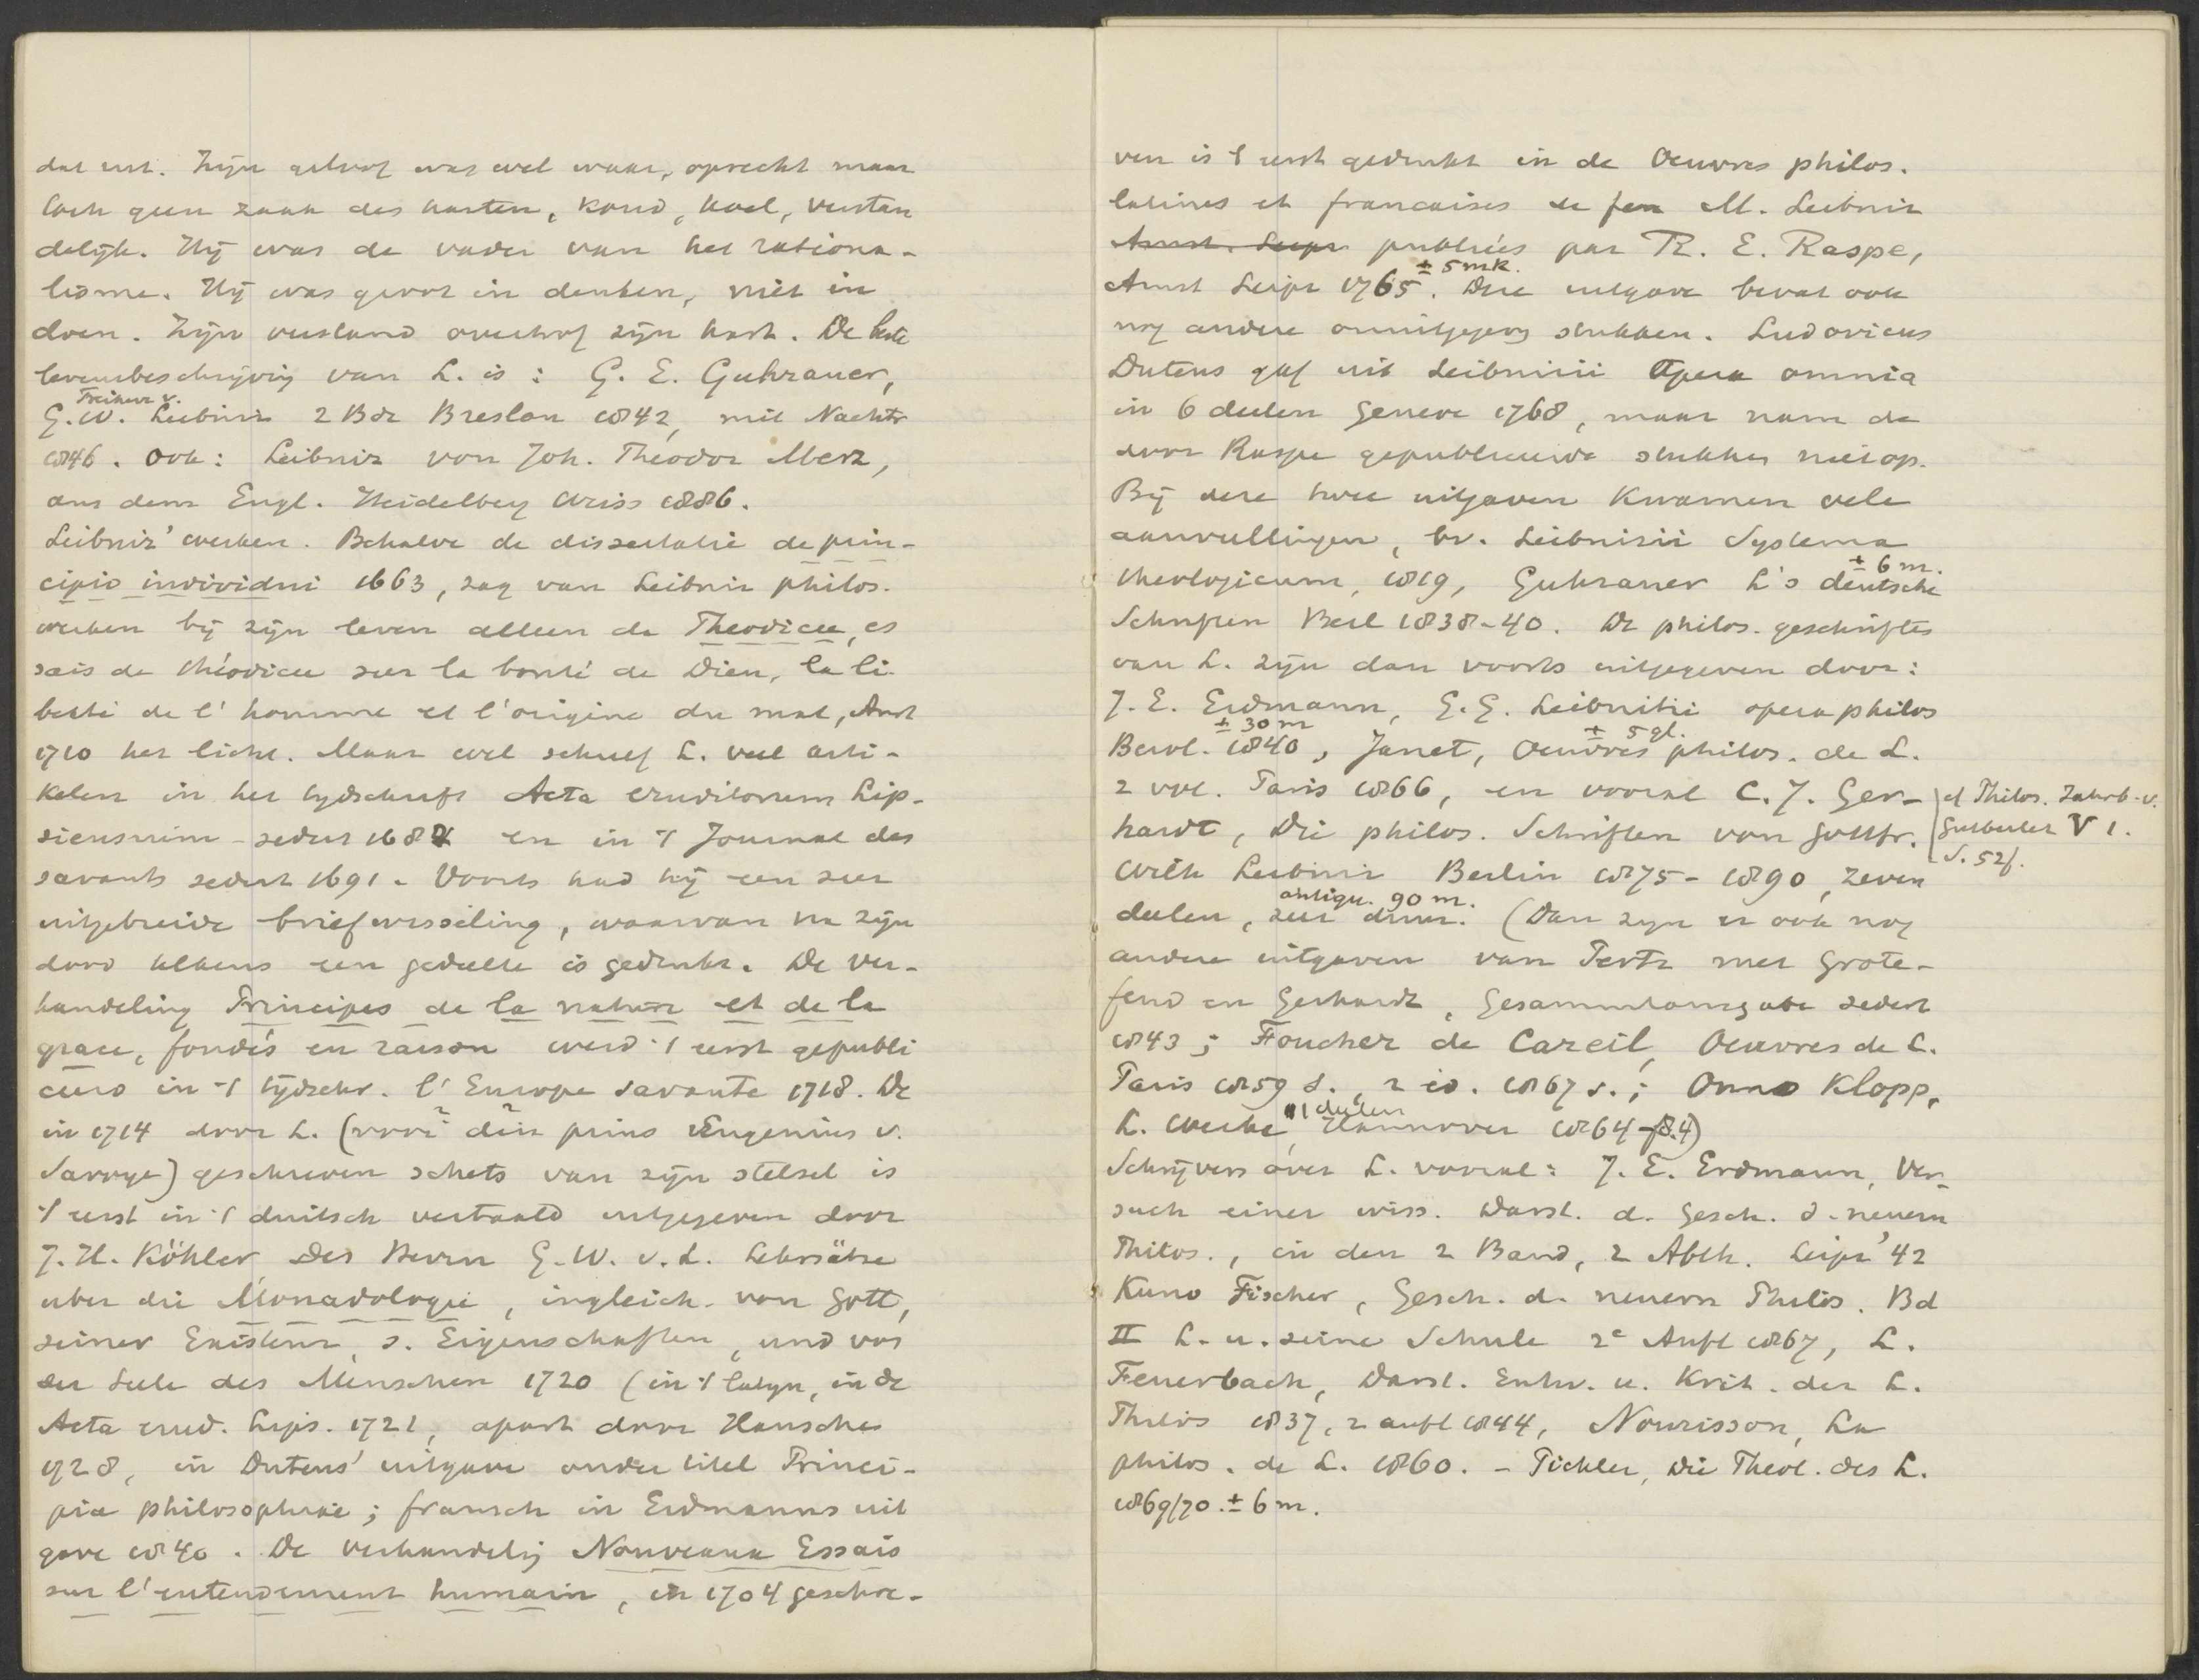 dat niet. Zijn geloof was wel waar, oprecht maar
toch geen zaak des harten, koud, koel, verstan
delijk. Hij was de vader van het rationa-
lisme. Hij was groot in denken, niet in
doen. Zijn verstand overtrof zijn hart. De beste
levensbeschrijving van L. is: G. E. Guhrauer,
G. W. Freiherr v. Leibniz 2 Bde Breslau 1842, mit Nachtr
1846. Ook: Leibniz von Joh. Theodor Merz,
aus dem Engl. Heidelberg Weiss 1886.
Leibniz' werken. Behalve de dissertatie de prin-
cipio individui 1663, zag van Leibniz philos.
werken bij zijn leven alleen de Theodicee, es
sais de théodicee sur la bonté de Dieu, la li-
berté de l'homme et l'origine du mal, Amst
1710 het licht. Maar wel schreef L. veel arti-
kelen in het tydschrift Acta eruditorum Lip-
siensium sedert 1684 en in 't Journal des
savants sedert 1691. Voorts had hij een zeer
uitgebreide briefwisseling, waarvan na zijn
dood telkens een gedeelte is gedrukt. De ver-
handeling Principes de la nature et de la
grace, fondés en raison werd 't eerst gepubli
ceerd in 't tijdschr. l'Europe savante 1718. De
in 1714 door L. (voor den prins Eugenius v.
Savoye) geschreven schets van zijn stelsel is
't eerst in 't duitsch vertaald uitgegeven door
J. H. Köhler, Des Herrn G. W. v. L. Lehrsätze
uber die Monadologie, ingleich. von Gott,
seiner Existenz, s. Eigenschaften, und von
der Seele des Menschen 1720 (in 't latijn, in de
Acta erud. Lips. 1721, apart door Hansche
1728, in Dutens' uitgave onder titel Princi-
pia philosophiae; fransch in Erdmanns uit
gave 1840. De verhandelig Nouveaux Essais
sur l'entendement humain, in 1704 geschre-
ven is 't eerst gedrukt in de Oeuvres philos.
latines et francaises de feu M. Leibniz
Amst. Leipz publiées par R. E. Raspe,
Amst Leipz 1765. ± 5 mk. Deze uitgave bevat ook
nog andere onuitgegeven stukken. Ludovicus
Dutens gaf uit Leibnizii Opera omnia
in 6 deelen Geneve 1768, maar nam de
door Raspe gepubliceerde stukken niet op.
Bij deze twee uitgaven kwamen vele
aanvullingen, bv. Leibnizii Systema
theologicum, 1819, Guhrauer L's deutsche ± 6 m.
Schriften Berl 1838-40. De philos. geschriften
van L. zijn dan voorts uitgegeven door:
J. E. Erdmann, G. G. Leibnitii opera philos
Berol. 1840, ± 30 m Janet, Oeuvres philos. de L. ± 5 gl.
2 vol. Paris 1866, en vooral C. J. Ger-
hardt, Die philos. Schriften von Gottfr.
cf Philos. Jahrb. v.
Gutberlet V 1.
S. 52f.
Wilh Leibniz Berlin 1875-1890, zeven
deelen, zeer duur. antiqu. 90 m. (Dan zyn er ook nog
andere uitgaven van Pertz met Grote-
fend en Gerhardt, Gesammtausgabe sedert
1843; Foucher de Careil, Oeuvres de L.
Paris 1859 s., 2 éd. 1867 s.; Onno Klopp,
L. Werke, 11 deelen Hannover 1864-84)
Schrijvers over L. vooral: J. E. Erdmann, Ver-
such einer wiss. Darst. d. Gesch. d. neuern
Philos., in den 2 Band, 2 Abth. Leipz '42
Kuno Fischer, Gesch. d. neuern Philos. Bd
II L. u. seine Schule 2e Aufl 1867, L.
Feuerbach, Darst. Entw. u. Krit. der L.
Philos 1837, 2 aufl 1844, Nourisson, La
philos. de L. 1860. - Pichler, Die Theol. des L.
1869/70. ± 6 m.